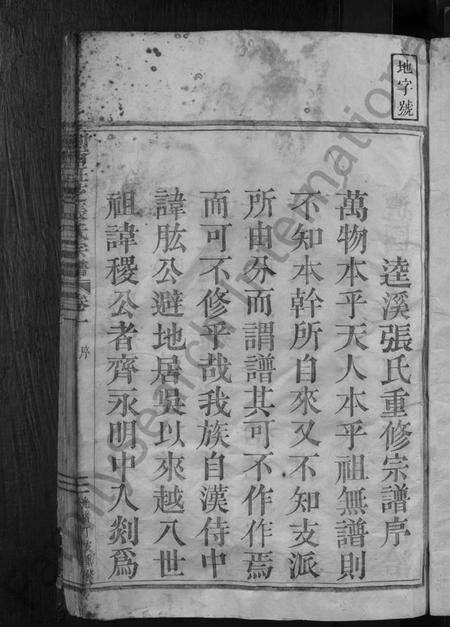 地字號
逵溪張氏重修宗譜序
萬物本乎天人本乎祖無譜則
不知本幹所自來又不知支派
所由分而謂譜其可不作作焉
而可不修乎哉我族自漢侍中
諱肱公避地居吳以來越八世
祖諱稷公者齊永明中入剡為
張氏宗譜 卷一 序
FamilySearch International